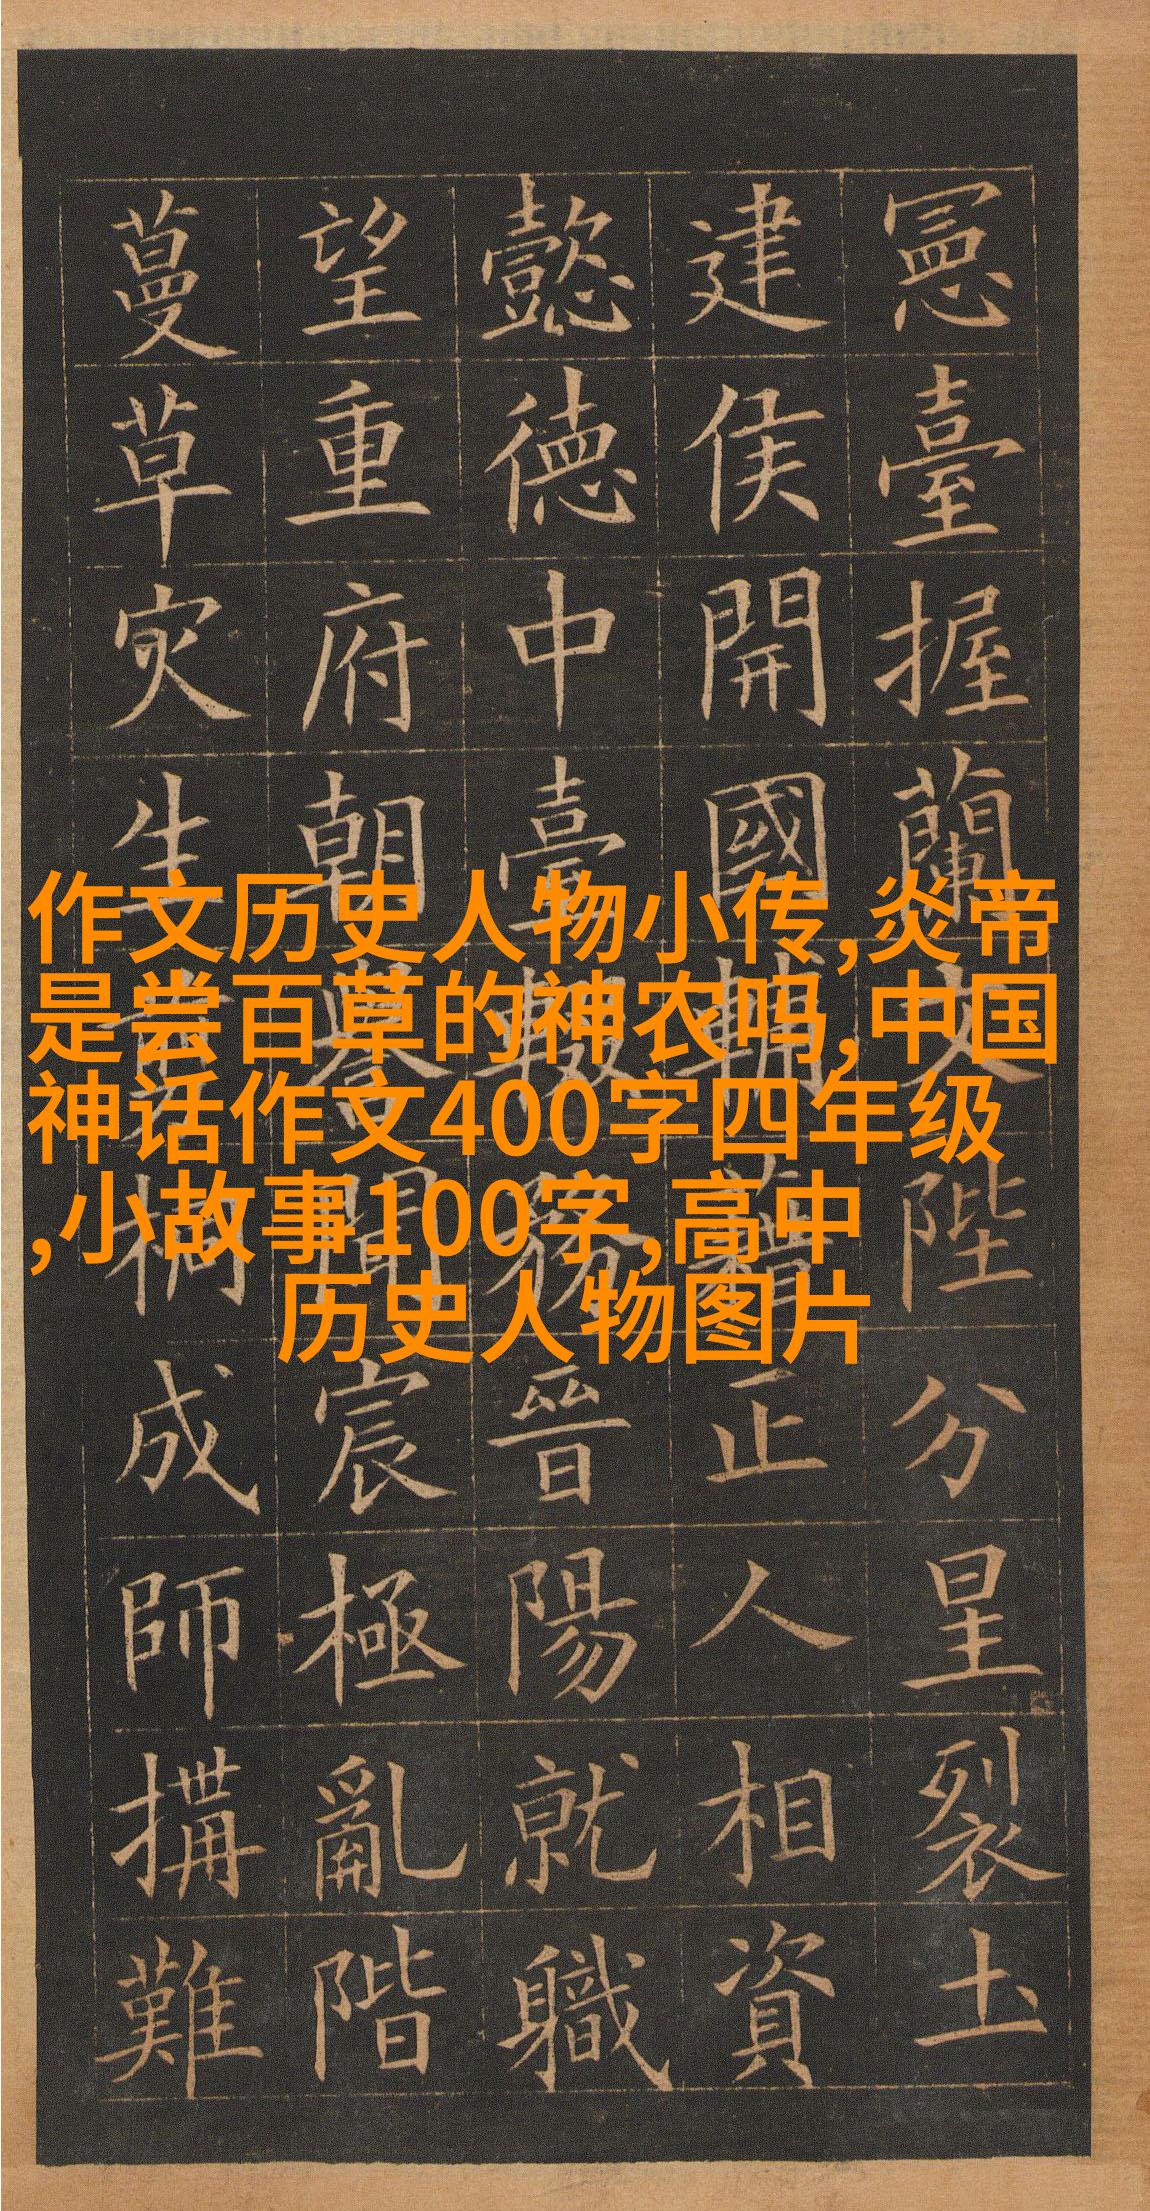 憲臺握蘭文陛分星裂土
建侯開國輔藉正人相資
懿德中臺輟務晉陽就職
望重府朝譽聞宸極亂階
蔓草灾生桐成師搆難
作文历史人物小传,炎帝
是尝百草的神农吗,中国
神话作文400字四年级
,小故事100字,高中
历史人物图片